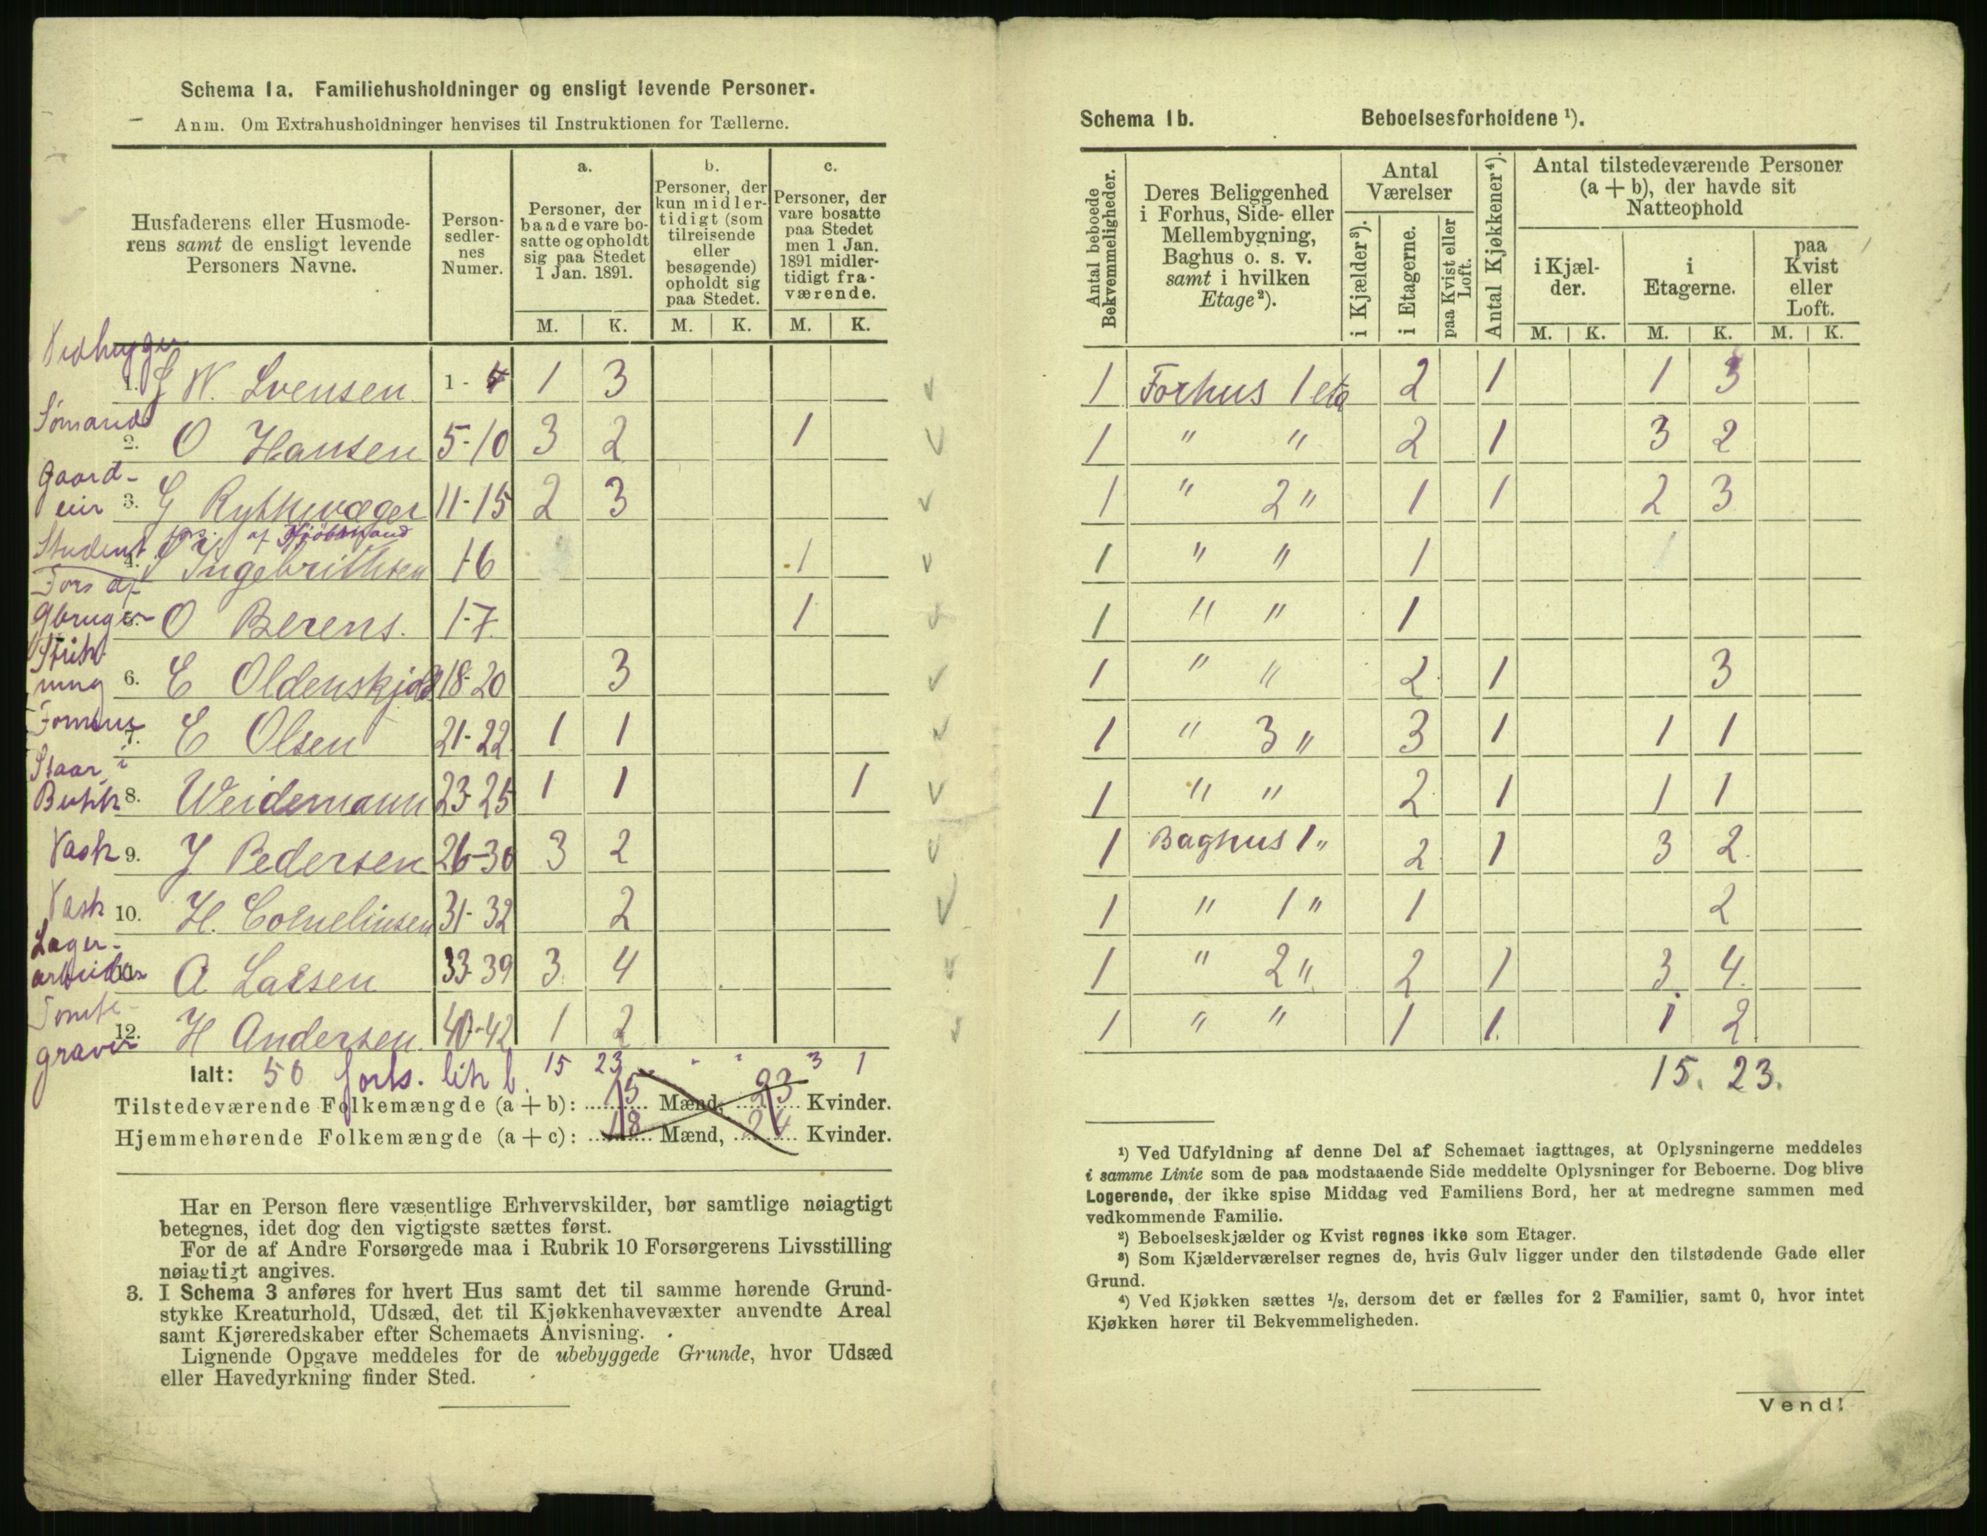 Schema 1a. Familiehusholdninger og ensligt levende Personer.
Anm. Om Extrahusholdninger henvises til Instruktionen for Tællerne.
Husfaderens eller Husmode-
rens samt de ensligt levende
Personers Navne.
Person-
sedler-
nes
Numer.
a.
Personer, der
baade vare bo-
satte og opholdt
sig paa Stedet
1 Jan. 1891.
b.
Personer, der
kun midler-
tidigt (som
tilreisende
eller
besøgende)
opholdt sig
paa Stedet.
c.
Personer, der
vare bosatte
paa Stedet
men 1 Jan.
1891 midler-
tidigt fra-
værende.
M. K. M. K. M. K.
Vedhugger
1. G W. Svensen 1-4 1 3
Sømand
2. O Hansen 5-10 3 2 1
Gaard-
eier 3. G Rytterager 11-15 2 3
fors. af Kjøbmand
Student
4. Ingebrithsen 16 1
Fors af
Gbruger 5. O Berens. 17. 1
Strik
ning 6. E Oldenskjold 18-20 3
7. E Olsen 21-22 1 1
Staar i
Butik 8. Weidemann 23-25 1 1 1
Vask 9. J Pedersen 26-30 3 2
Vask 10. H. Corneliusen 31-32 2
Lager-
arbeider 11. A Larsen 33-39 3 4
Tomte-
graver 12. H Andersen. 40-42 1 2
Ialt: 50 forts. lit b. 15 23 " " 3 1
Tilstedeværende Folkemængde (a + b): 15 Mænd, 23 Kvinder.
Hjemmehørende Folkemængde (a + c): 18 Mænd, 24 Kvinder.
Har en Person flere væsentlige Erhvervskilder, bør samtlige nøiagtigt
betegnes, idet dog den vigtigste sættes først.
For de af Andre Forsørgede maa i Rubrik 10 Forsørgerens Livsstilling
nøiagtigt angives.
3. I Schema 3 anføres for hvert Hus samt det til samme hørende Grund-
stykke Kreaturhold, Udsæd, det til Kjøkkenhavevæxter anvendte Areal
samt Kjøreredskaber efter Schemaets Anvisning.
Lignende Opgave meddeles for de ubebyggede Grunde, hvor Udsæd
eller Havedyrkning finder Sted.
Schema 1b. Beboelsesforholdene ¹).
Antal beboede
Bekvemmeligheder.
Deres Beliggenhed
i Forhus, Side- eller
Mellembygning,
Baghus o. s. v.
samt i hvilken
Etage²).
Antal
Værelser
i Kjælder³).
i Etagerne.
paa Kvist eller
Loft.
Antal Kjøkkener⁴).
Antal tilstedeværende Personer
(a + b), der havde sit
Natteophold
i Kjæl-
der.
i
Etagerne.
paa
Kvist
eller
Loft.
M. K. M. K. M. K.
1 Forhus 1 eta 2 1 1 3
1 " " 2 1 3 2
1 " 2 " 1 1 2 3
1 " " 1
1 " " 1
1 " " 2 1 3
1 " 3 " 3 1 1 1
1 " " 2 1 1 1
1 Baghus 1 " 2 1 3 2
1 " 1 " 1 2
1 " 2 " 2 1 3 4
1 " " 1 1 1 2
15. 23.
¹) Ved Udfyldning af denne Del af Schemaet iagttages, at Oplysningerne meddeles
i samme Linie som de paa modstaaende Side meddelte Oplysninger for Beboerne. Dog blive
Logerende, der ikke spise Middag ved Familiens Bord, her at medregne sammen med
vedkommende Familie.
²) Beboelseskjælder og Kvist regnes ikke som Etager.
³) Som Kjælderværelser regnes de, hvis Gulv ligger under den tilstødende Gade eller
Grund.
⁴) Ved Kjøkken sættes ¹/₂, dersom det er fælles for 2 Familier, samt 0, hvor intet
Kjøkken hører til Bekvemmeligheden.
Vend!